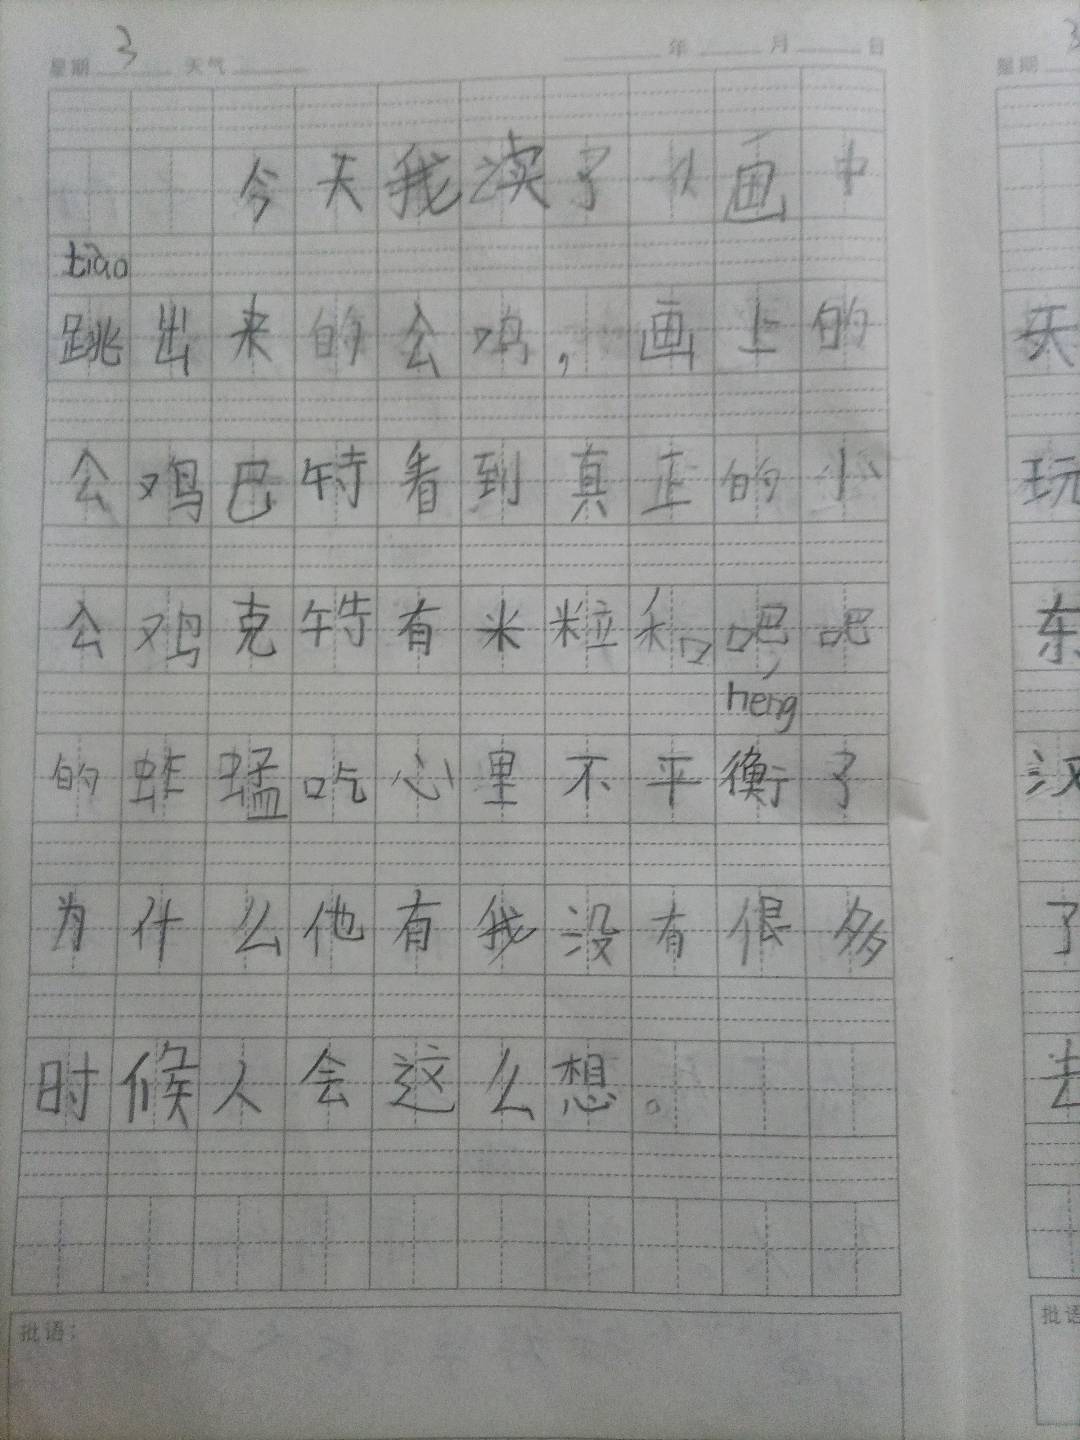 星期 3 天气 年 月 日
今天我读了从画中
tiào
跳出来的公鸡,画上的
公鸡巴特看到真正的小
公鸡克特有米粒和吧吧
héng
的蚱蜢吃心里不平衡了
为什么他有我没有很多
时候人会这么想。
批语:
星期 3
天
玩
东
汉
了
去
批语